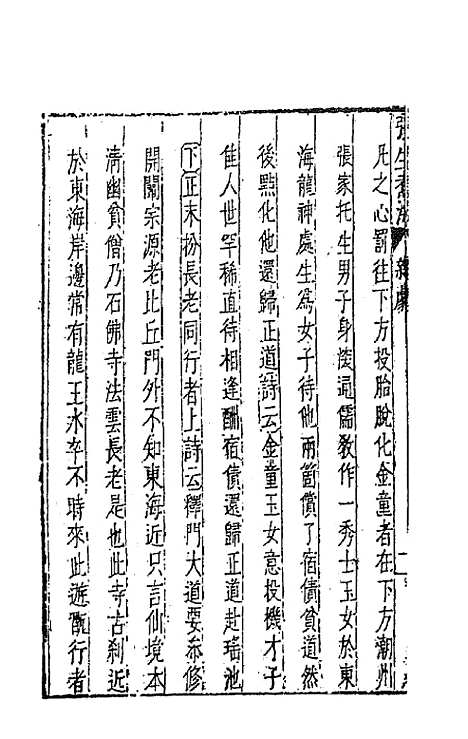 張生煮海　雜劇
凡之心罰往下方投胎脫化金童者在下方潮州
張家托生男子身深通儒教作一秀士玉女於東
海龍神處生為女子待他兩箇償了宿債貧道然
後點化他還歸正道詩云金童玉女意投機才子
佳人世罕稀直待相逢酬宿債還歸正道赴瑤池
下正末扮長老同行者上詩云釋門大道要叅修
開闡宗源老比丘門外不知東海近只言仙境本
清幽貧僧乃石佛寺法雲長老是也此寺古刹近
於東海岸邊常有龍王水卒不時來此遊翫行者